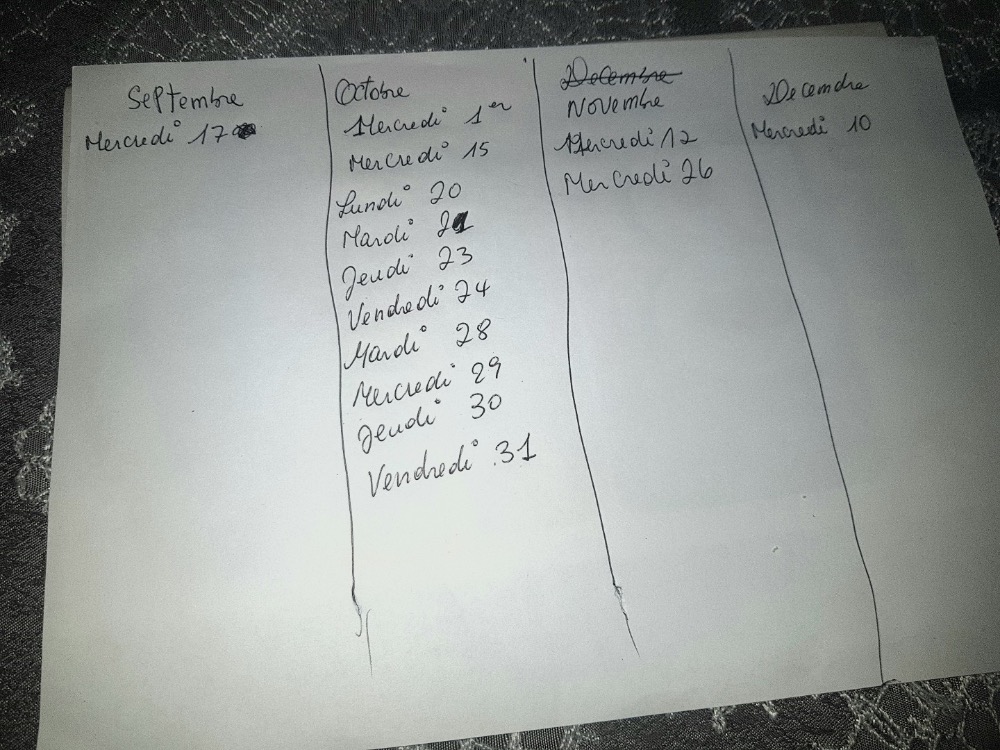 Septembre
Mercredi 17
Octobre
Mercredi 1er
Mercredi 15
Lundi 20
Mardi 21
Jeudi 23
Vendredi 24
Mardi 28
Mercredi 29
Jeudi 30
Vendredi 31
Decembre
Novembre
Mercredi 12
Mercredi 26
Decembre
Mercredi 10